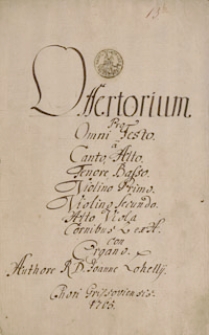 13
Offertorium.
Pro
Omni Festo.
a
Canto, Alto.
Tenore Basso.
Violino Primo.
Violino Secundo.
Alto Viola
Cornibus 2 ex
con
Organo.
Authore R. D. Joanne Lohelly.
Chori
1765.